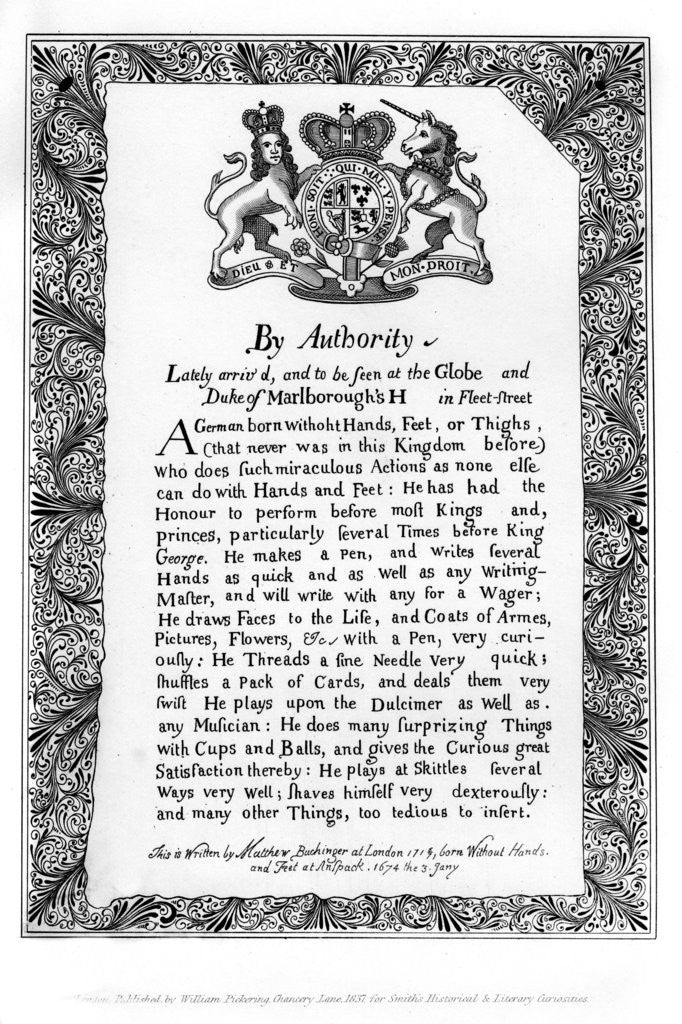 HONI·SOIT·QUI·MAL·Y·PENSE
DIEU ET MON·DROIT
By Authority
Lately arriv'd, and to be ſeen at the Globe and
Duke of Marlborough's H in Fleet-ſtreet
A German born withoht Hands, Feet, or Thighs,
(that never was in this Kingdom before)
who does ſuch miraculous Actions as none elſe
can do with Hands and Feet: He has had the
Honour to perform before moſt Kings and,
princes, particularly ſeveral Times before King
George. He makes a Pen, and writes ſeveral
Hands as quick and as well as any Writing-
Maſter, and will write with any for a Wager;
He draws Faces to the Life, and Coats of Armes,
Pictures, Flowers, &c with a Pen, very curi-
ouſly: He Threads a fine Needle very quick;
ſhuffles a Pack of Cards, and deals them very
ſwift He plays upon the Dulcimer as Well as.
any Muſician: He does many ſurprizing Things
with Cups and Balls, and gives the Curious great
Satisfaction thereby: He plays at Skittles ſeveral
Ways very Well; ſhaves himſelf very dexterouſly:
and many other Things, too tedious to inſert.
This is Written by Matthew Buchinger at London, born Without Hands.
and Feet at Anſpack. 1674 the 3. Jany
London, Published, by William Pickering, Chancery Lane, 1837, for Smith's Historical & Literary Curiosities.